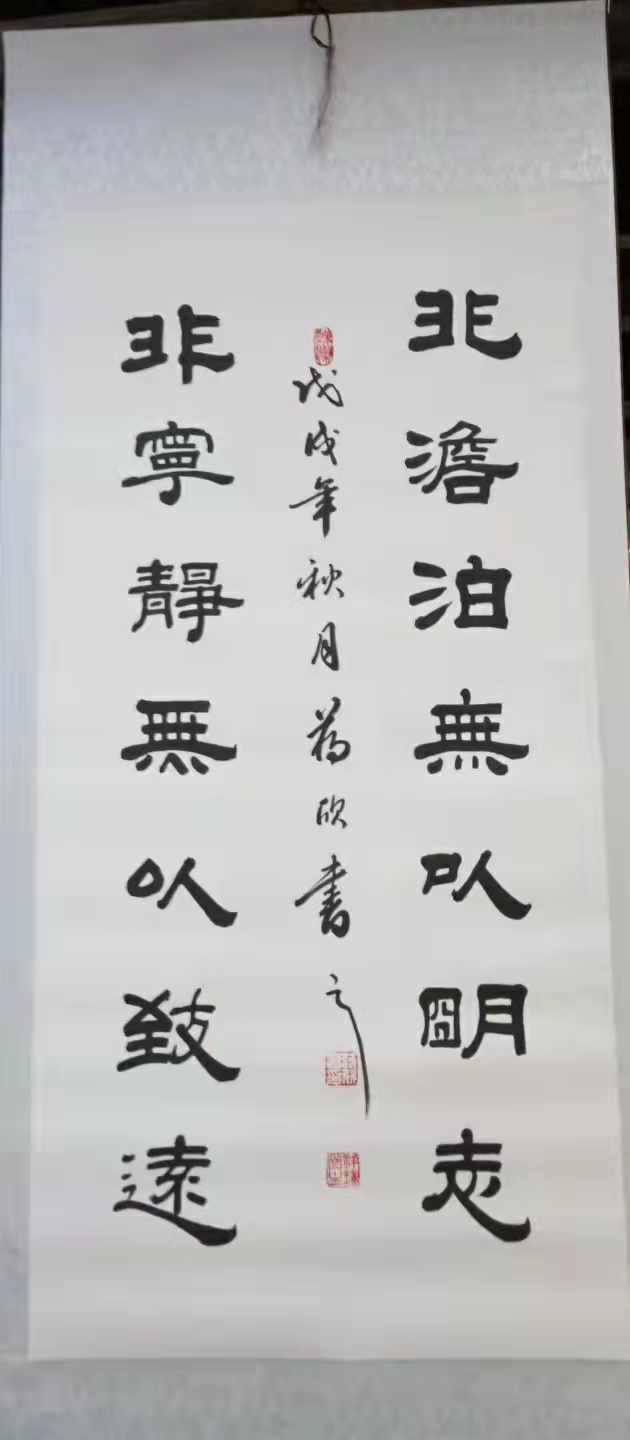 非澹泊無以明志
戊戌年秋月蒋欣書
非寧靜無以致遠